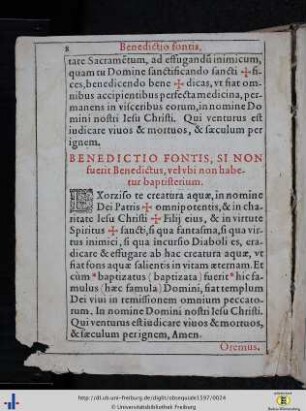 8 Benedictio fontis.
tate Sacramẽtum, ad effugandũ inimicum,
quam tu Domine sanctificando sancti ✠ fi-
ces, benedicendo bene ✠ dicas, vt fiat om-
nibus accipientibus perfecta medicina, per-
manens in visceribus eorum, in nomine Do
mini nostri Iesu Christi. Qui venturus est
iudicare viuos & mortuos, & sæculum per
ignem.
BENEDICTIO FONTIS, SI NON
fuerit Benedictus, vel vbi non habe-
tur baptisterium.
EXorziso te creatura aquæ, in nomine
Dei Patris ✠ omnipotentis, & in cha-
ritate Iesu Christi ✠ Filij eius, & in virtute
Spiritus ✠ sancti, si qua fantasma, si qua vir-
tus inimici, si qua incursio Diaboli es, era-
dicare & effugare ab hac creatura aquæ, vt
fiat fons aquæ salientis in vitam æternam. Et
cùm * baptizatus (baptizata) fuerit * hic fa-
mulus (hæc famula) Domini, fiat templum
Dei viui in remissionem omnium peccato-
rum. In nomine Domini nostri Iesu Christi.
Qui venturus est iudicare viuos & mortuos,
& sæculum per ignem, Amen.
Oremus.
http://dl.ub.uni-freiburg.de/diglit/obsequiale1597/0024
© Universitätsbibliothek Freiburg